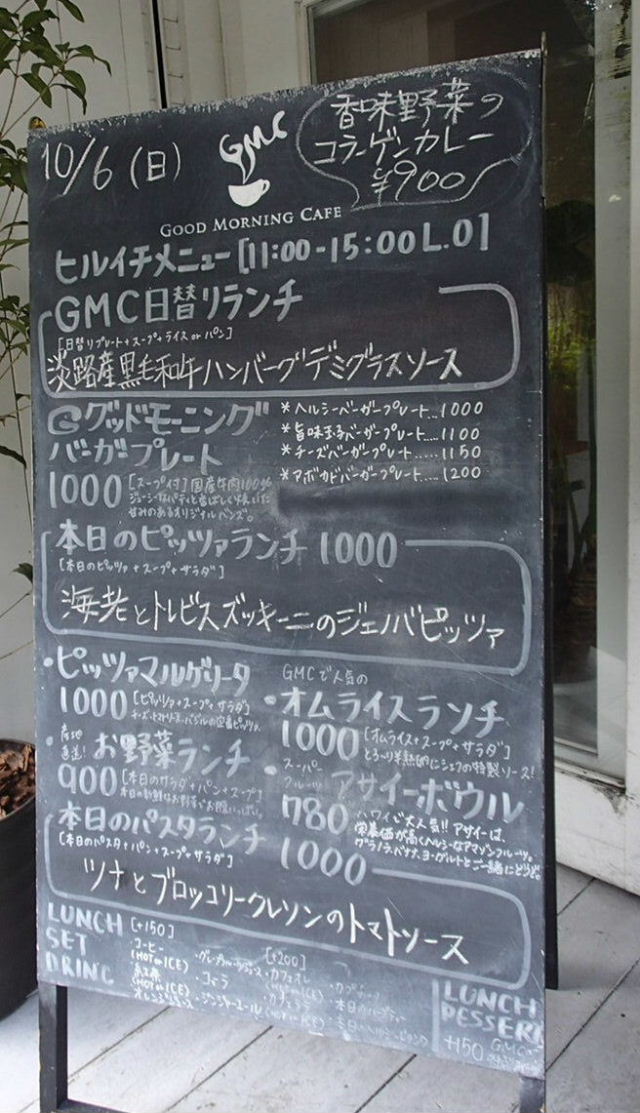 10/6(日)
GMC
香味野菜の
コラーゲンカレー
¥900
GOOD MORNING CAFE
ヒルイチメニュー[11:00-15:00L.O]
GMC日替リランチ
[日替リプレート+スープ+ライス or パン]
淡路産黒毛和牛ハンバーグデミグラスソース
グッドモーニング
バーガープレート
1000 [スープ付]国産牛肉100%
ジューシーなパティと香ばしく焼いた
甘みのあるオリジナルバンズ。
*ヘルシーバーガープレート...1000
*旨味玉子バーガープレート....1100
*チーズバーガープレート.....1150
*アボカドバーガープレート....1200
本日のピッツァランチ 1000
[本日のピッツァ+スープ+サラダ]
海老とトレビスズッキーニのジェノバピッツァ
・ピッツァマルゲリータ
1000 [ピッツァ+スープ+サラダ]
チーズ・トマトソース・バジルの定番ピッツァ。
GMCで人気の
・オムライスランチ
1000 [オムライス+スープ+サラダ]
とろ〜り半熟卵にシェフの特製ソース!
・産地直送!お野菜ランチ
900 [本日のサラダ+パン+スープ]
・スーパーフルーツ アサイーボウル
780 ハワイで大人気!!アサイーは、
栄養価が高くヘルシーなアマゾンフルーツ。
グラノーラ・バナナ、ヨーグルトとご一緒にどうぞ。
本日のパスタランチ 1000
[本日のパスタ+パン+スープ+サラダ]
ツナとブロッコリークレソンのトマトソース
LUNCH
SET
DRINC
[+150]
コーヒー
(HOT or ICE)
紅茶
(HOT or ICE)
オレンジジュース
・グレープフルーツジュース
・コーラ
・ジンジャーエール
[+200]
・カフェオレ
(HOT or ICE)
・カフェラテ
(HOT or ICE)
LUNCH
DESSERT
+150